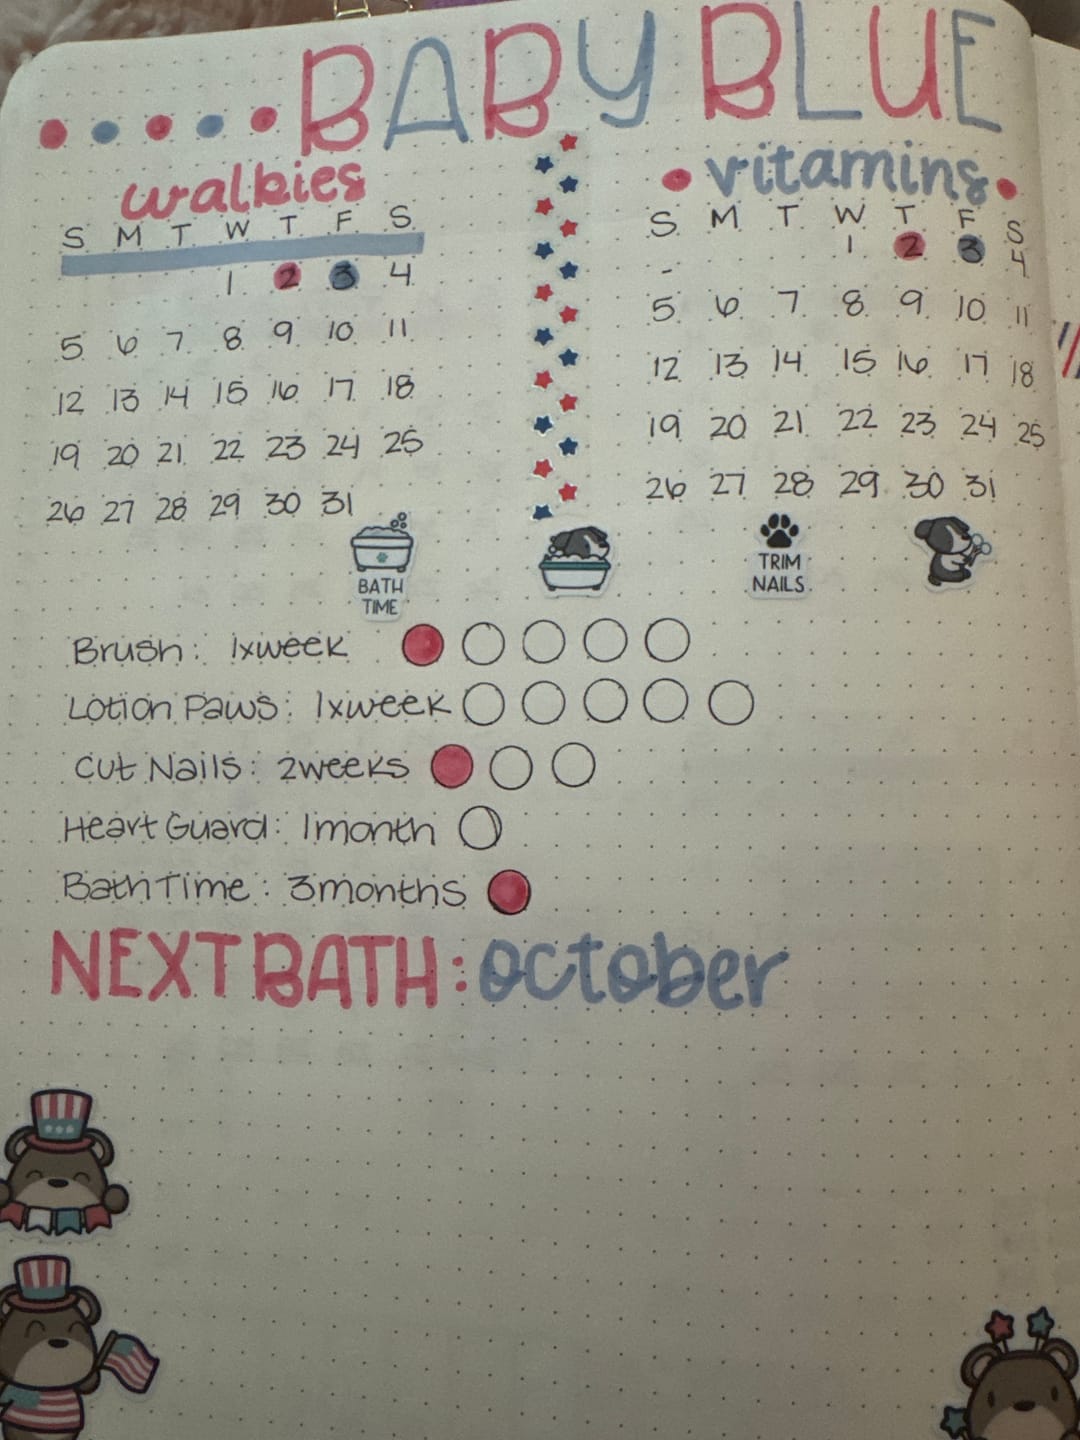 BABY BLUE
walkies
S M T W T F S
1 2 3 4
5 6 7 8 9 10 11
12 13 14 15 16 17 18
19 20 21 22 23 24 25
26 27 28 29 30 31
vitamins
S M T W T F S
1 2 3 4
5 6 7 8 9 10 11
12 13 14 15 16 17 18
19 20 21 22 23 24 25
26 27 28 29 30 31
BATH
TIME
TRIM
NAILS
Brush: 1xweek
Lotion Paws: 1xweek
Cut Nails: 2weeks
Heart Guard: 1month
Bath Time: 3months
NEXT BATH: october